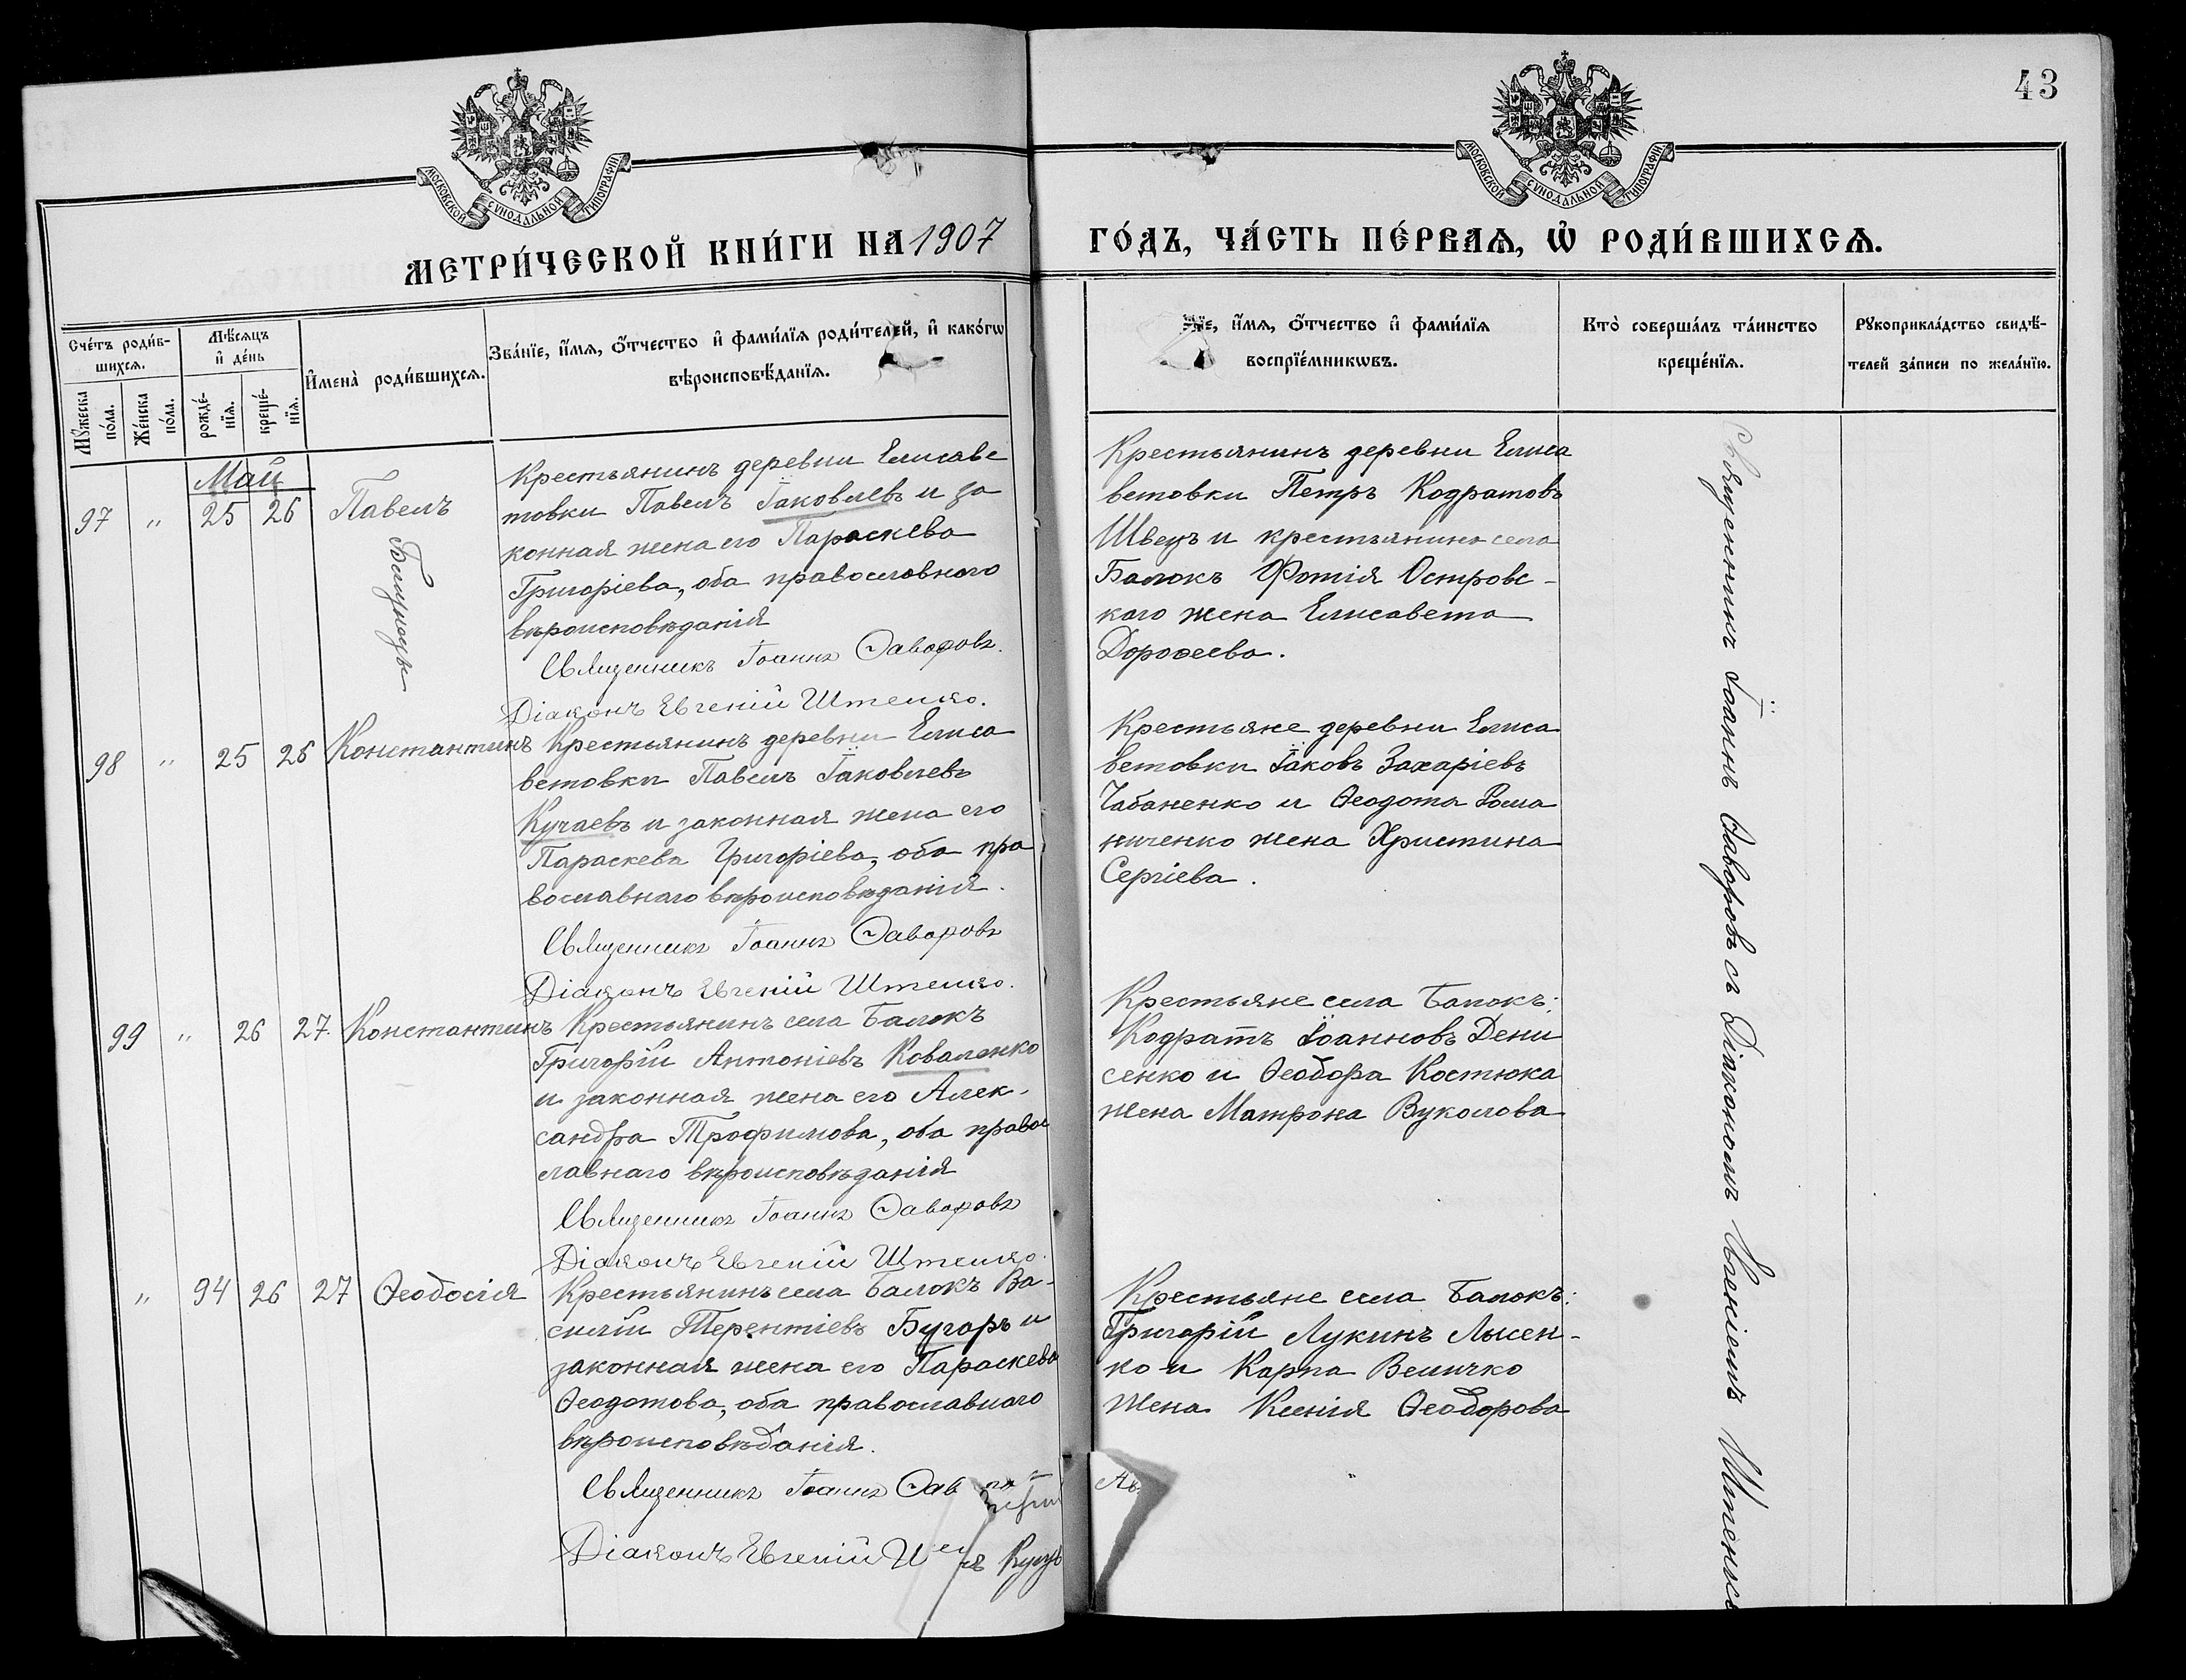 43
МОСКОВСКОЙ СУНОДАЛЬНОЙ ТИПОГРАФІИ
МОСКОВСКОЙ СУНОДАЛЬНОЙ ТИПОГРАФІИ
МЕТРИ́ЧЕСКОЙ КНИ́ГИ НА 1907
ГО́ДЪ, ЧА́СТЬ ПЕ́РВАѦ, Ѡ҆ РОДИ́ВШИХСѦ.
Сче́тъ роди́в-
шихсѧ.
Мꙋ́жеска
по́ла.
Же́нска
по́ла.
Мѣ́сѧцъ
и҆ де́нь
рожде́-
нїѧ.
креще́-
нїѧ.
И҆мена̀ роди́вшихсѧ.
Зва́нїе, и҆́мѧ, ѻ҆́тчество и҆ фами́лїѧ роди́телей, и҆ како́гѡ
вѣроисповѣ́данїѧ.
нїе, и҆́мѧ, ѻ҆́тчество и҆ фами́лїѧ
воспрїе́мникѡвъ.
Кто̀ соверша́лъ та́инство
креще́нїѧ.
Рꙋкоприкла́дство свидѣ́-
телей за́писи по жела́нїю.
Май
97 " 25 26 Павелъ
Близнецы
Крестьянинъ деревни Елисаве
товки Павелъ Іаковлевъ и за
конная жена его Параскева
Григоріева, оба православнаго
вѣроисповѣданія
Священникъ Іоаннъ Заворовъ.
Діаконъ Евгеній Штенко.
Крестьянинъ деревни Елиса
ветовки Петръ Кодратовъ
Швецъ и крестьянина села
Балокъ Фотія Островс-
каго жена Елисавета
Дороѳеева.
98 " 25 26 Константинъ
Крестьянинъ деревни Елиса
ветовки Павелъ Іаковлевъ
Кучаевъ и законная жена его
Параскева Григоріева, оба пра
вославнаго вѣроисповѣданія.
Священникъ Іоаннъ Заворовъ
Діаконъ Евгеній Штенко.
Крестьяне деревни Елиса
ветовки Іаковъ Захаріевъ
Чабаненко и Ѳеодота Рома
ниченко жена Христина
Сергіева.
99 " 26 27. Константинъ
Крестьянинъ села Балокъ
Григорій Антоніевъ Коваленко
и законная жена его Алек-
сандра Трофимова, оба правос
лавнаго вѣроисповѣданія
Священникъ Іоаннъ Заворовъ
Діаконъ Евгеній Штенко.
Крестьяне села Балокъ:
Кодратъ Іоанновъ Дени
сенко и Ѳеодора Костюка
жена Матрона Вуколова
" 94 26 27 Ѳеодосія
Крестьянинъ села Балокъ Ва-
силій Терентіевъ Бугоръ и
законная жена его Параскева
Ѳеодотова, оба православнаго
вѣроисповѣданія.
Священникъ Іоаннъ Зав
Діаконъ Евгеній
Крестьяне села Балокъ:
Григорій Лукинъ Лысен-
ко и Карпа Величко
жена Ксенія Ѳеодорова
Священникъ Іоаннъ Заворовъ съ Діакономъ Евгеніемъ Штенко